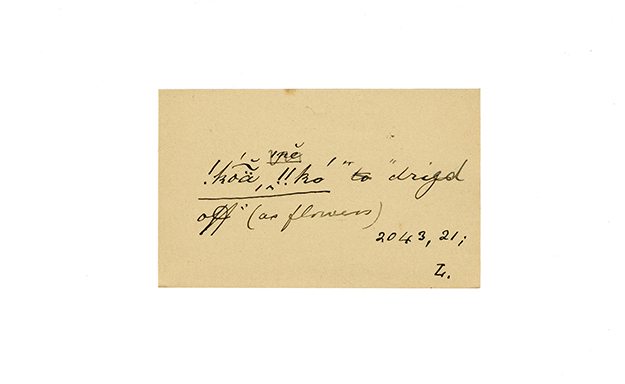 !kóä̃, !!kó "to "dried
off" (as flowers)
2043, 21;
L.